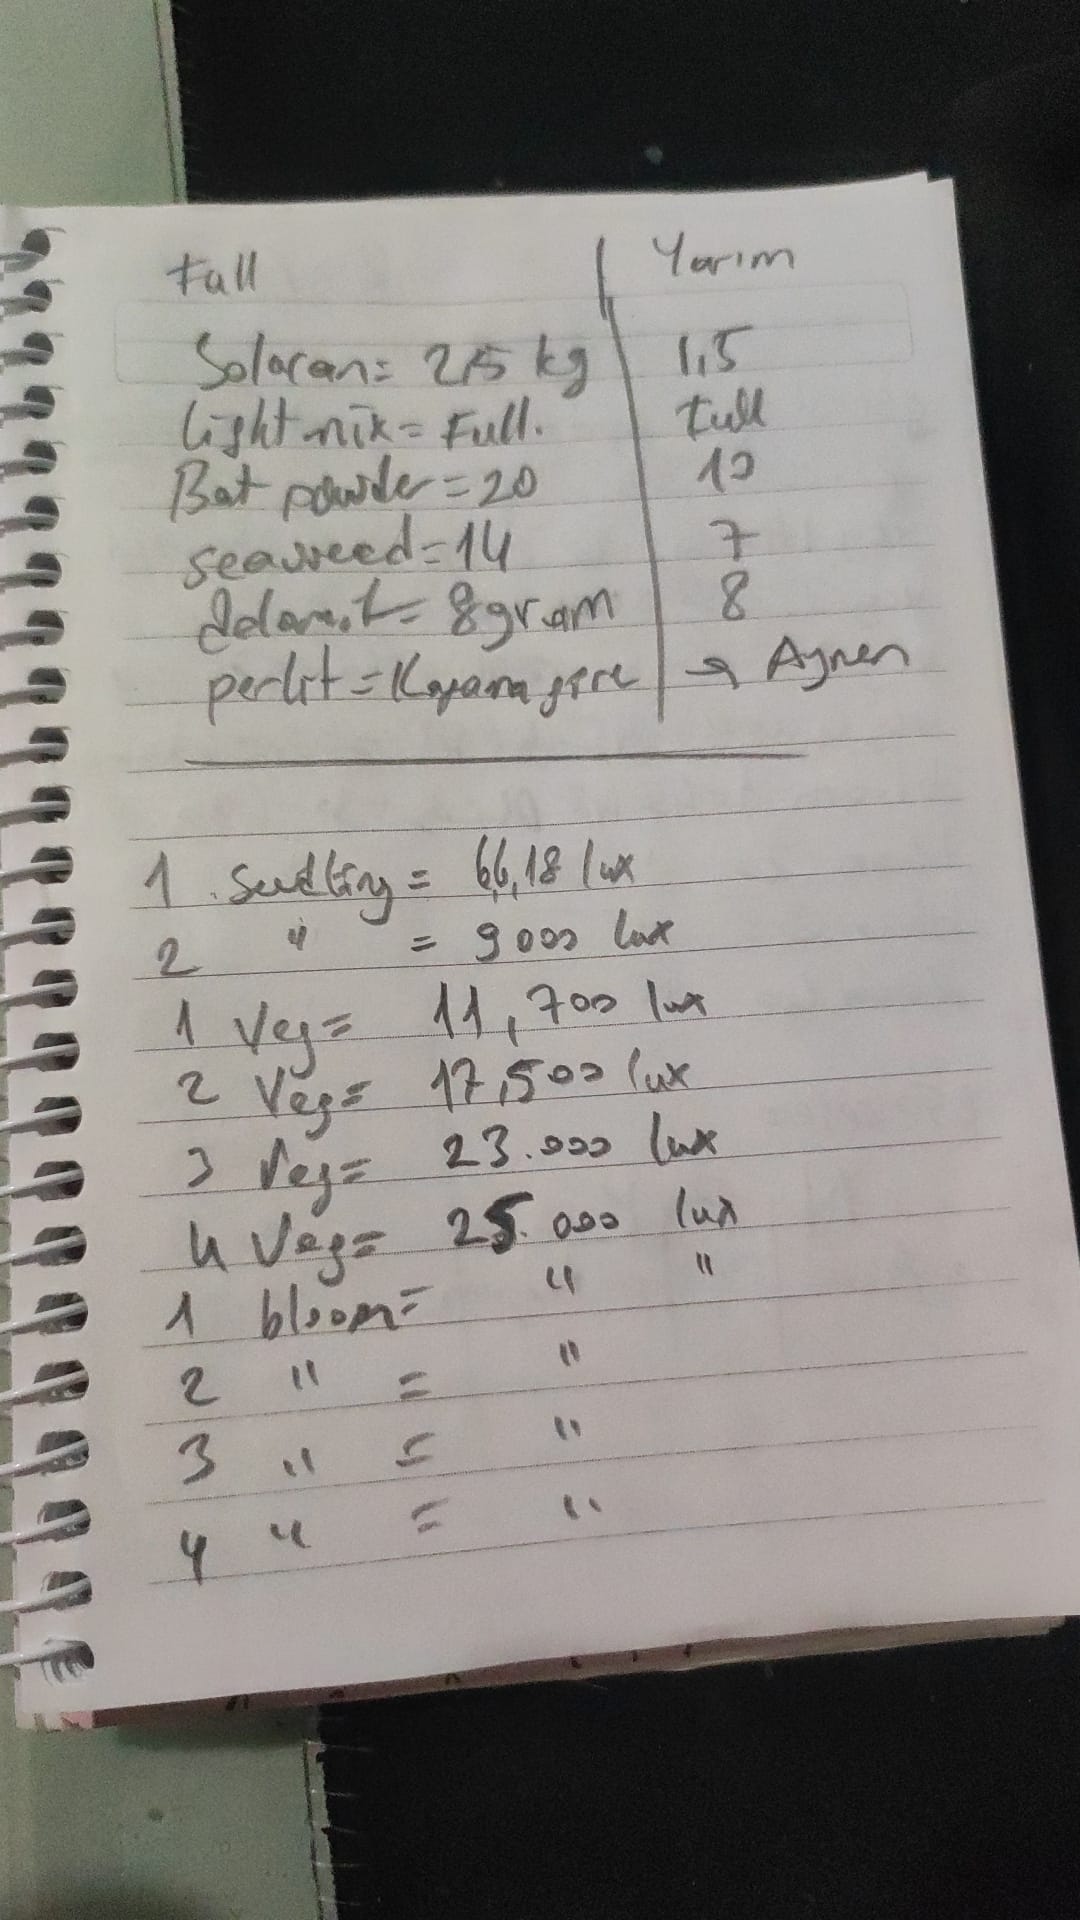 Full | Yarım
Solucan = 2,5 kg | 1,5
Light mix = Full. | Full
Bat powder = 20 | 10
seaweed = 14 | 7
dolomit = 8 gram | 8
perlit = göre | → Aynen
1 . Seedling = 66,18 lux
2 " = 9000 lux
1 Veg = 11,700 lux
2 Veg = 17,500 lux
3 Veg = 23.000 lux
4 Veg = 25.000 lux
1 bloom = " "
2 " = "
3 " = "
4 " = "